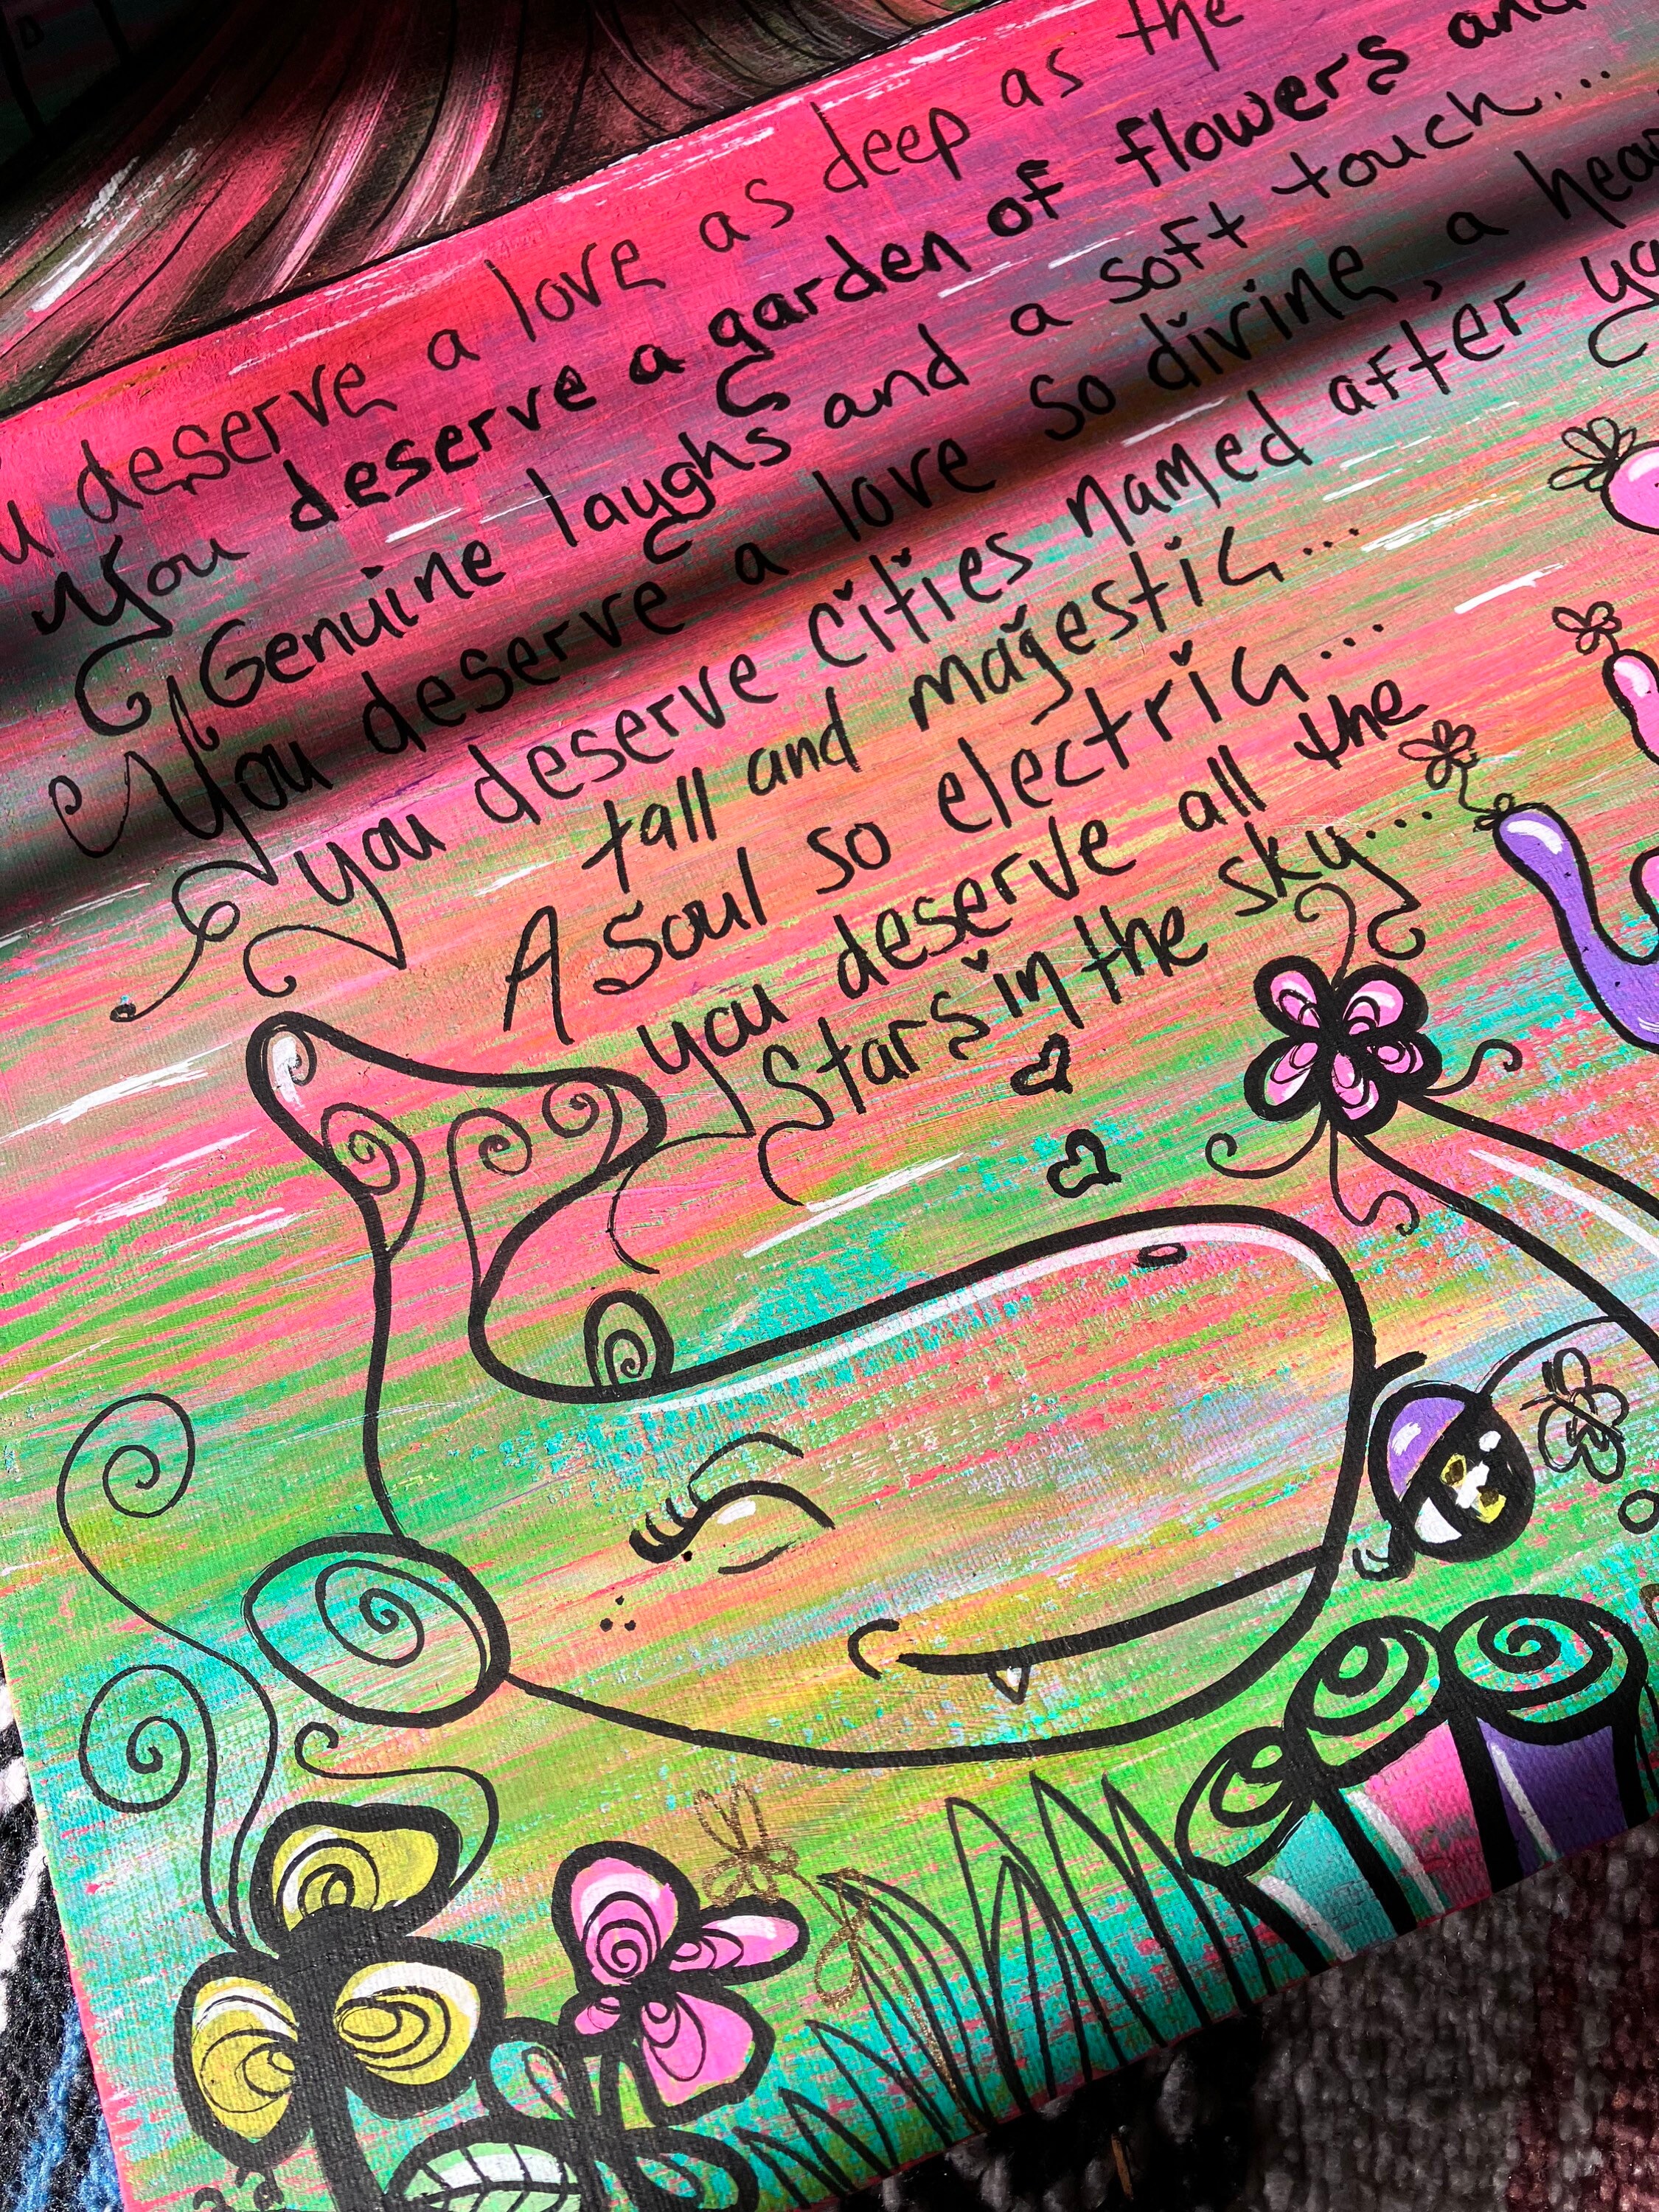 u deserve a love as deep as the
You deserve a garden of flowers and
Genuine laughs and a soft touch...
You deserve a love so divine, a hear
you deserve cities named after yo
tall and majestic...
A soul so electric...
you deserve all the
stars in the sky...